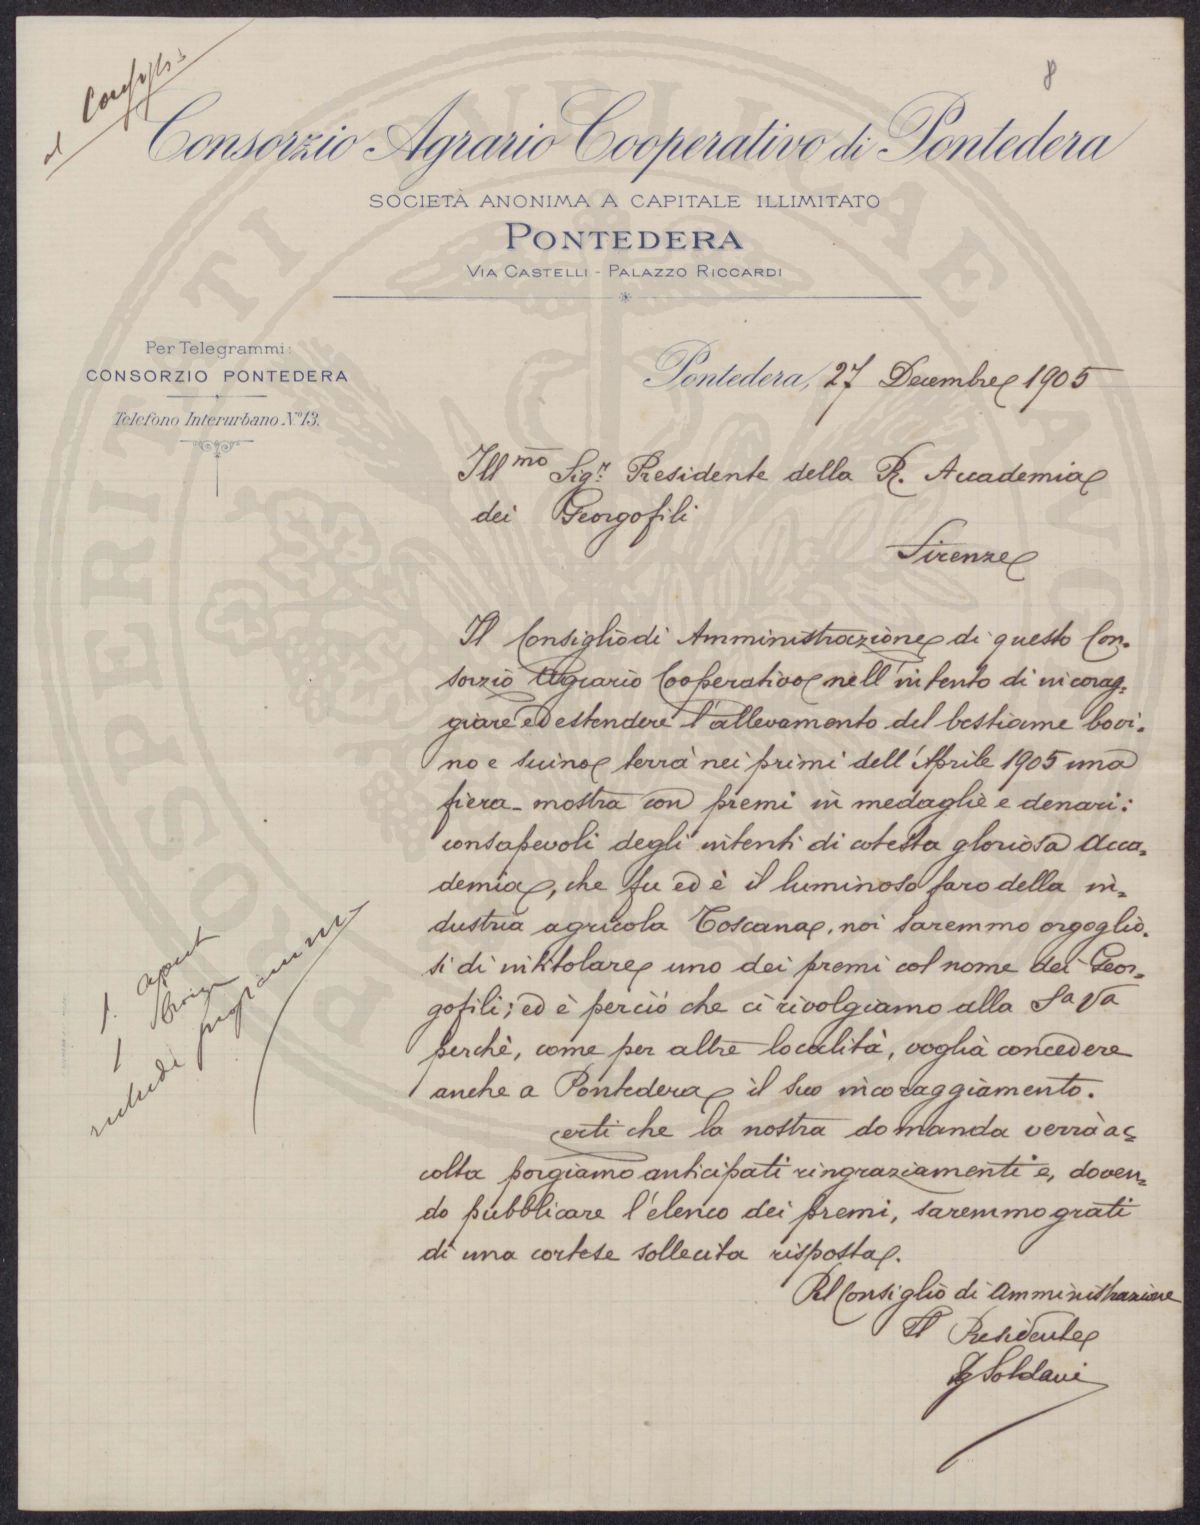 al Consiglio
8
Consorzio Agrario Cooperativo di Pontedera
SOCIETÀ ANONIMA A CAPITALE ILLIMITATO
PONTEDERA
VIA CASTELLI - PALAZZO RICCARDI
Per Telegrammi:
CONSORZIO PONTEDERA
Telefono Interurbano N.º 13.
Pontedera, 27 Decembre 1905
Ill.mo Sig.r Presidente della R. Accademia
dei Georgofili
Firenze
Il Consiglio di Amministrazione di questo Con-
sorzio Agrario Cooperativo nell'intento di incorag-
giare ed estendere l'allevamento del bestiame bovi-
no e suino terrà nei primi dell'Aprile 1905 una
fiera-mostra con premi in medaglie e denari:
consapevoli degli intenti di cotesta gloriosa Acca-
demia, che fu ed è il luminoso faro della in-
dustria agricola Toscana, noi saremmo orgoglio-
si di intitolare uno dei premi col nome dei Geor-
gofili; ed è perciò che ci rivolgiamo alla Sa Va
perchè, come per altre località, voglia concedere
anche a Pontedera il suo incoraggiamento.
Certi che la nostra domanda verrà ac-
colta porgiamo anticipati ringraziamenti e, doven-
do pubblicare l'elenco dei premi, saremmo grati
di una cortese sollecita risposta.
Pel Consiglio di Amministrazione
Il Presidente
Soldani
1. argent
1 bronzo
richiede programma
OSPERITATI PUBLICAE AU